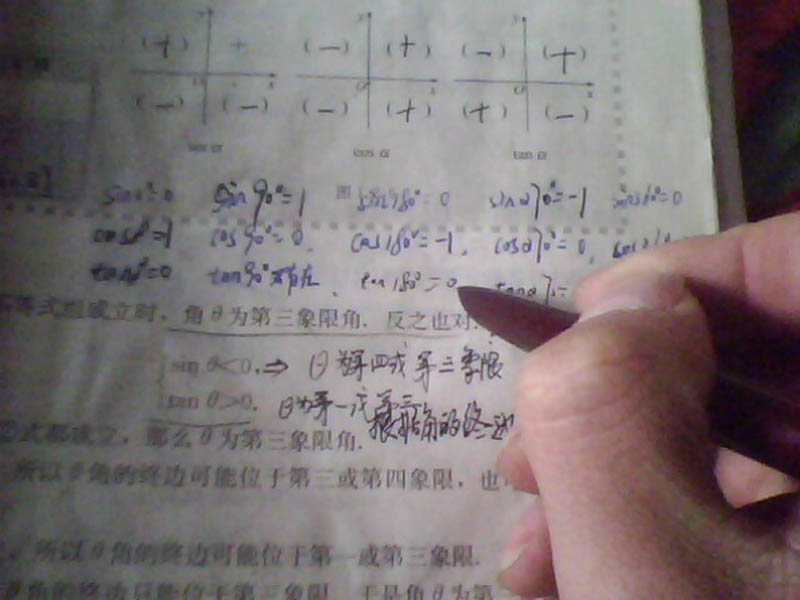 (+) + (—) (+) (—) (+)
(—) (—) (—) (+) (+) (—)
sin α cos α tan α
sin0°=0 sin90°=1 图 sin180°=0 sin270°=-1 sin360°=0
cos0°=1 cos90°=0, cos180°=-1, cos270°=0,
tan0°=0 tan90°不存在, tan180°=0
等式组成立时, 角θ为第三象限角. 反之也对.
sin θ<0, ⇒ θ为第四或第三象限
tan θ>0. θ为第一或第三
根据角的终边
式都成立, 那么θ为第三象限角.
所以θ角的终边可能位于第三或第四象限, 也
所以θ角的终边可能位于第一或第三象限.
θ角的终边只能位于第三象限. 于是角θ为第三